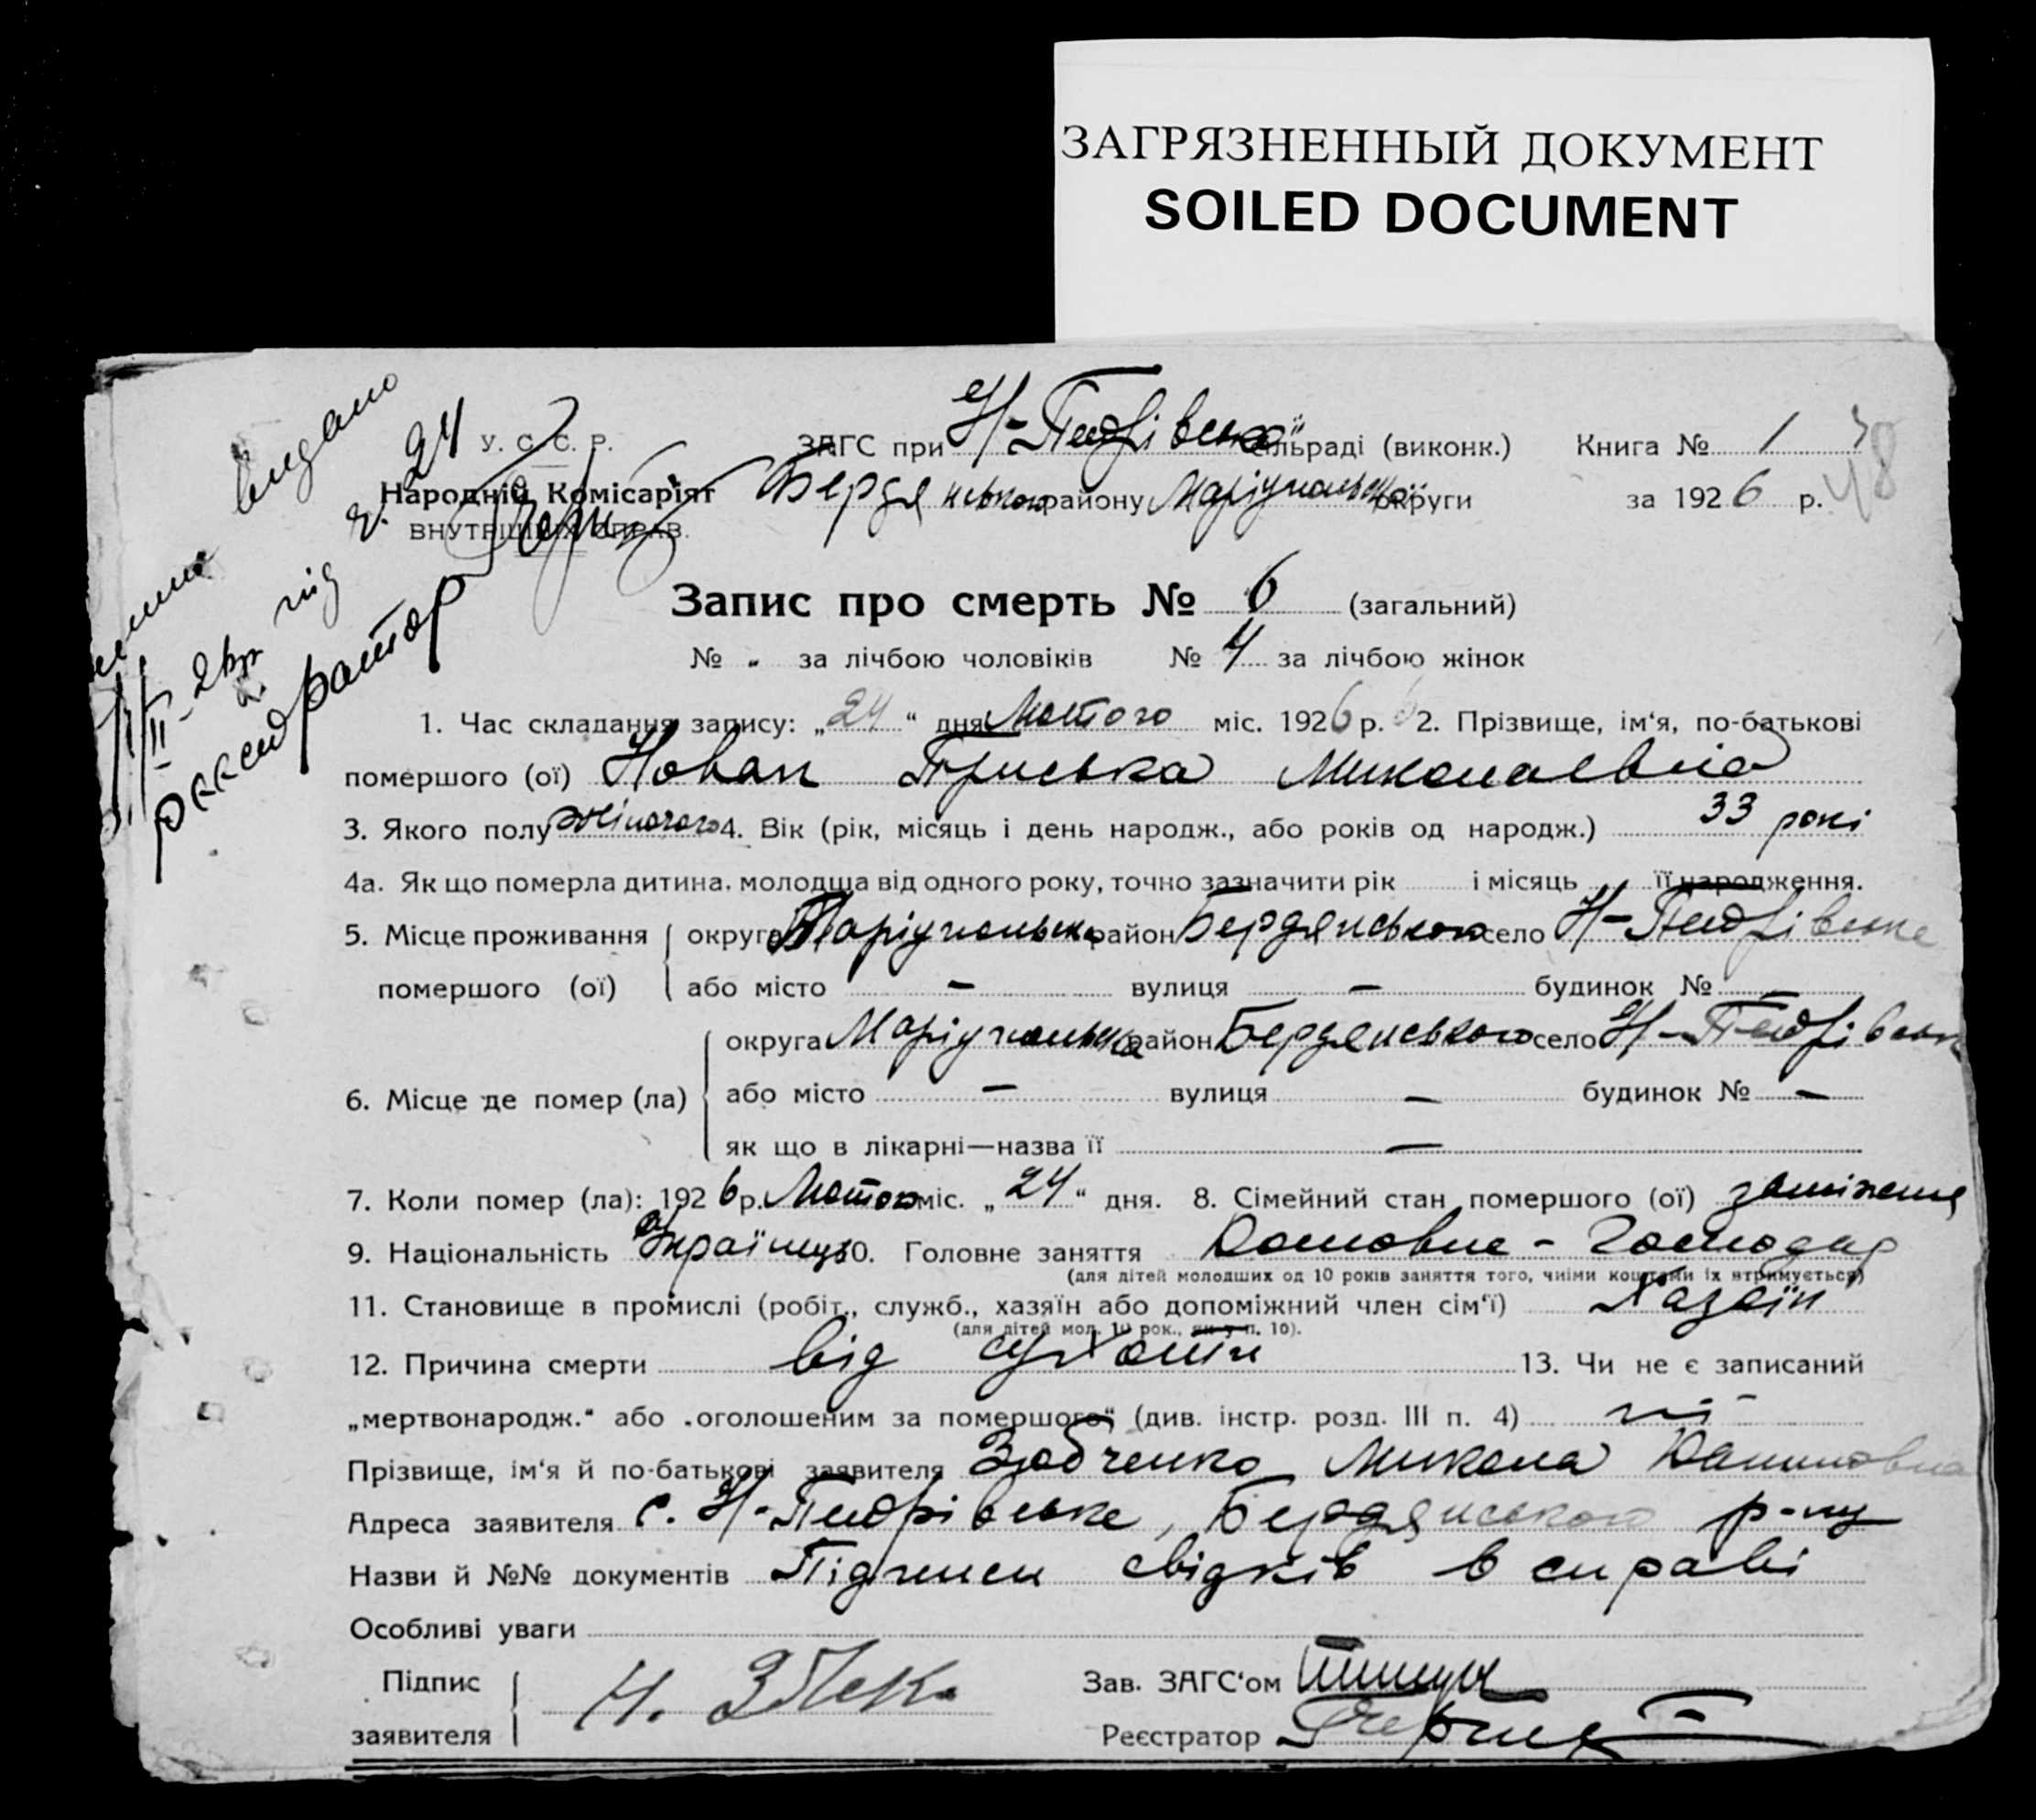 ЗАГРЯЗНЕННЫЙ ДОКУМЕНТ
SOILED DOCUMENT
видано
під ч. 24
реєстратор
У. С. С. Р.
Народній Комісаріят
ВНУТРІШНІХ СПРАВ.
ЗАГС при Н-Петрівській сільраді (виконк.) Книга № 1
48
Бердянського району Маріупольської округи за 1926 р.
Запис про смерть № 6 (загальний)
№ „ за лічбою чоловіків № 4 за лічбою жінок
1. Час складання запису: „24“ дня Лютого міс. 1926 р. 2. Прізвище, ім‘я, по-батькові
помершого (ої) НовакПриська Миколаевна
3. Якого полу жіночого 4. Вік (рік, місяць і день народж., або років од народж.) 33 рокі
4а. Як що померла дитина, молодща від одного року, точно зазначити рік і місяць її народження.
5. Місце проживання помершого (ої) округа Маріупольська район Бердянського село Н-Петрівське
або місто – вулиця – будинок № –
6. Місце де помер (ла) округа Маріупольська район Бердянського село Н-Петрівськ
або місто – вулиця – будинок № –
як що в лікарні—назва її –
7. Коли помер (ла): 1926 р. Лютого міс. „24“ дня. 8. Сімейний стан помершого (ої) заміжня
9. Національність Українця 10. Головне заняття Домовне - Господар
(для дітей молодших од 10 років заняття того, чиїми коштами їх втримується)
11. Становище в промислі (робіт., служб., хазяїн або допоміжний член сім‘ї) Хазяїн
(для дітей мол. 10 рок., як у п. 10).
12. Причина смерти від сухоти 13. Чи не є записаний
„мертвонародж.“ або „оголошеним за помершого“ (див. інстр. розд. III п. 4) ні
Прізвище, ім‘я й по-батькові заявителя Микола
Адреса заявителя с. Н-Петрівське, Бердянського р-ну
Назви й №№ документів Підписи свідків в справі
Особливі уваги
Підпис заявителя Зав. ЗАГС‘ом
Реєстратор